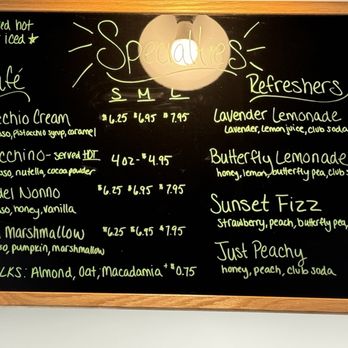 ed hot
r iced ★
Specialties
afé
S M L
cchio Cream $6.25 $6.95 $7.95
sso, pistachio syrup, caramel
cchino - served HOT 4oz - $4.95
so, nutella, cocoa powder
del Nonno $6.25 $6.95 $7.95
sso, honey, vanilla
Marshmallow $6.25 $6.95 $7.95
so, pumpkin, marshmallow
LKS: Almond, Oat, Macadamia +$0.75
Refreshers
Lavender Lemonade
lavender, lemon juice, club soda
Butterfly Lemonade
honey, lemon, butterfly pea, club
Sunset Fizz
Strawberry, peach, butterfly pea,
Just Peachy
honey, peach, club soda